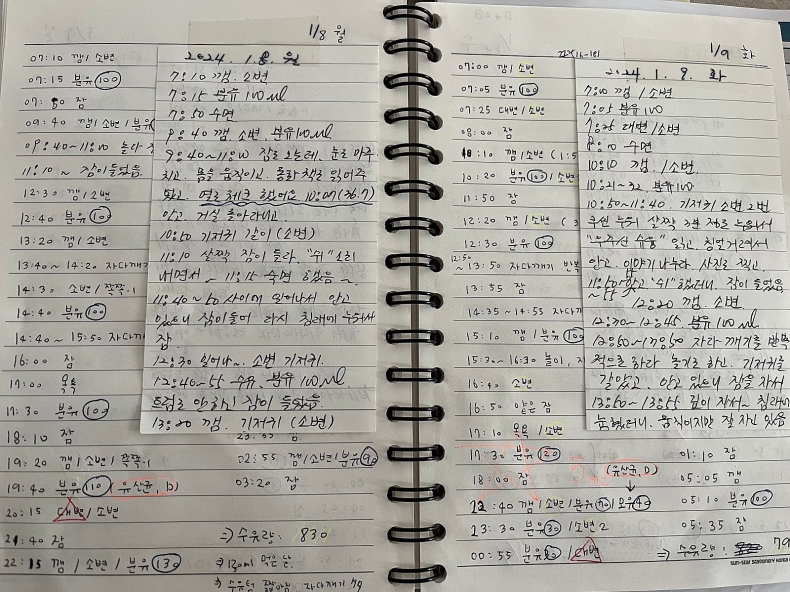 1/8 월
07:10 깸/소변
07:15 분유 100
07:50 잠
09:40 깸/소변/분유
09:40~11:10 놀다
11:10~ 잠이들었음
12:30 깸/소변
12:40 분유 100
13:20 깸/소변
13:40~14:20 자다깨기
14:30 소변/쪽쪽이
14:40 분유 100
14:40~15:50 자다깨기
16:00 잠
17:00 목욕
17:30 분유 100
18:10 잠
19:20 깸/소변/쪽쪽이
19:40 분유 110 (유산균, D)
20:15 대변/소변
21:40 잠
22:15 깸/소변/분유 130
02:55 깸/소변/분유 90
03:20 잠
⇒ 수유량: 830
⇒ 130ml 먹은 날
⇒ 수유텀 짧아짐 자다깨기
2024. 1. 8. 월
7:10 깸. 소변
7:15 분유 100ml
7:50 수면
9:40 깸 소변. 분유100ml
9:40~11:10 잠을 오는데. 눈을 마주
치고. 몸을 움직이고. 동화책을 읽어주
었고. 열을 체크 했어요 10:07 (36.7)
안고. 거실 돌아다니고.
10:50 기저귀 갈이 (소변)
11:10 살짝 잠이 들다. "쉬" 소리
내면서~ 11:15 수면 했음~.
11:40~50 사이에 일어나서 안고
있으니 잠이들어 다시 침대에 누워서
잠
12:30 일어나~. 소변 기저귀.
12:40~55 수유. 분유 100ml.
트림도 안하고 잠이 들었음
13:20 깸. 기저귀 (소변)
1/9 화
07:00 깸/소변
07:05 분유 100
07:25 대변/소변
08:00 잠
10:10 깸/소변
10:20 분유 100/소변
11:50 잠
12:20 깸/소변
12:30 분유 100
12:50
~13:50 자다깨기 반복
13:55 잠
14:35~14:55 자다깨기
15:10 깸/분유 100
15:30~16:30 놀이,
16:40 소변
16:50 얕은 잠
17:10 목욕/소변
17:30 분유 120
18:00 잠
(유산균, D)
22:40 깸/소변/분유 70/모유 40
23:30 분유 30/소변2
00:55 분유/대변
01:10 잠
05:05 깸
05:10 분유 100
05:35 잠
⇒ 수유량: 79
SUN-STAR STATIONERY KOREA
2024. 1. 9. 화
7:00 깸/소변
7:05 분유 100
7:25 대변/소변
8:00 수면
10:10 깸./소변.
10:21~32 분유 100
10:50~11:40. 기저귀 소변 2번
쿠션 누워 살짝 3분 정도 누워서
읽고 칭얼거려서
안고 이야기 나누다. 사진을 찍고.
11:50 안고 "쉬" 했더니. 잠이 들었음
~55
12:20 깸. 소변
12:30~12:45 분유 100ml
12:50~13:50 자다 깨기를 반복
적으로 하다 놀기도 하고. 기저귀를
갈았고. 안고 있으니 잠을 자서
13:50~13:55 깊이 자서~ 침대에
눕혔더니. 움직이지만 잘 자고 있음